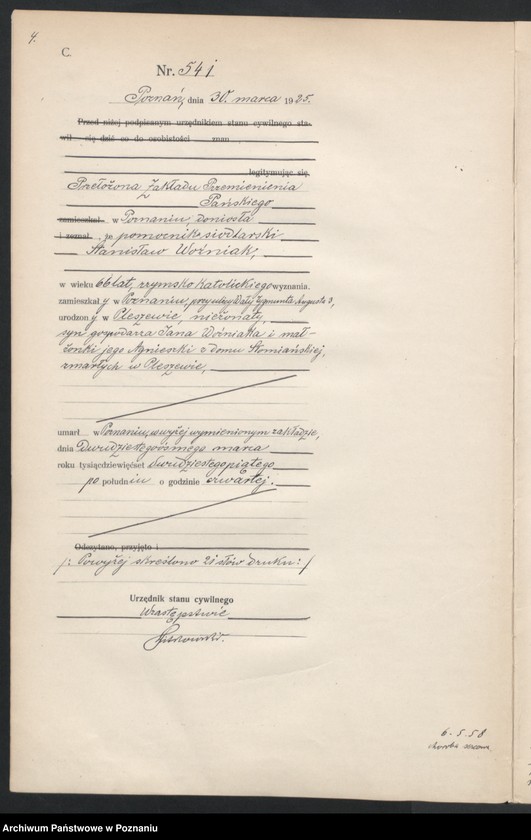 4.
C.
Nr. 541
Poznań, dnia 30. marca 1925.
Przed niżej podpisanym urzędnikiem stanu cywilnego sta-
wił się dziś co do osobistości znan
legitymując się,
Przełożona Zakładu Przemienienia
Pańskiego
zamieszkał w Poznaniu, doniosła
i zeznał, że pomocnik siodlarski
Stanisław Woźniak,
w wieku 66 lat, rzymsko katolickiego wyznania,
zamieszkały w Poznaniu, przy ulicy Wały Zygmunta Augusta 3,
urodzony w Pleszewie, nieżonaty,
syn gospodarza Jana Woźniaka i mał-
żonki jego Agnieszki z domu Słomiańskiej,
zmarłych w Pleszewie,
umarł w Poznaniu, w wyżej wymienionym zakładzie,
dnia Dwudziestegoósmego marca
roku tysiącdziewięćset dwudziestegopiątego
po południu o godzinie czwartej.
Odczytano, przyjęto i
/: Powyżej skreślono 20 słów druku: /
Urzędnik stanu cywilnego
W zastępstwie
6-5-58
Archiwum Państwowe w Poznaniu